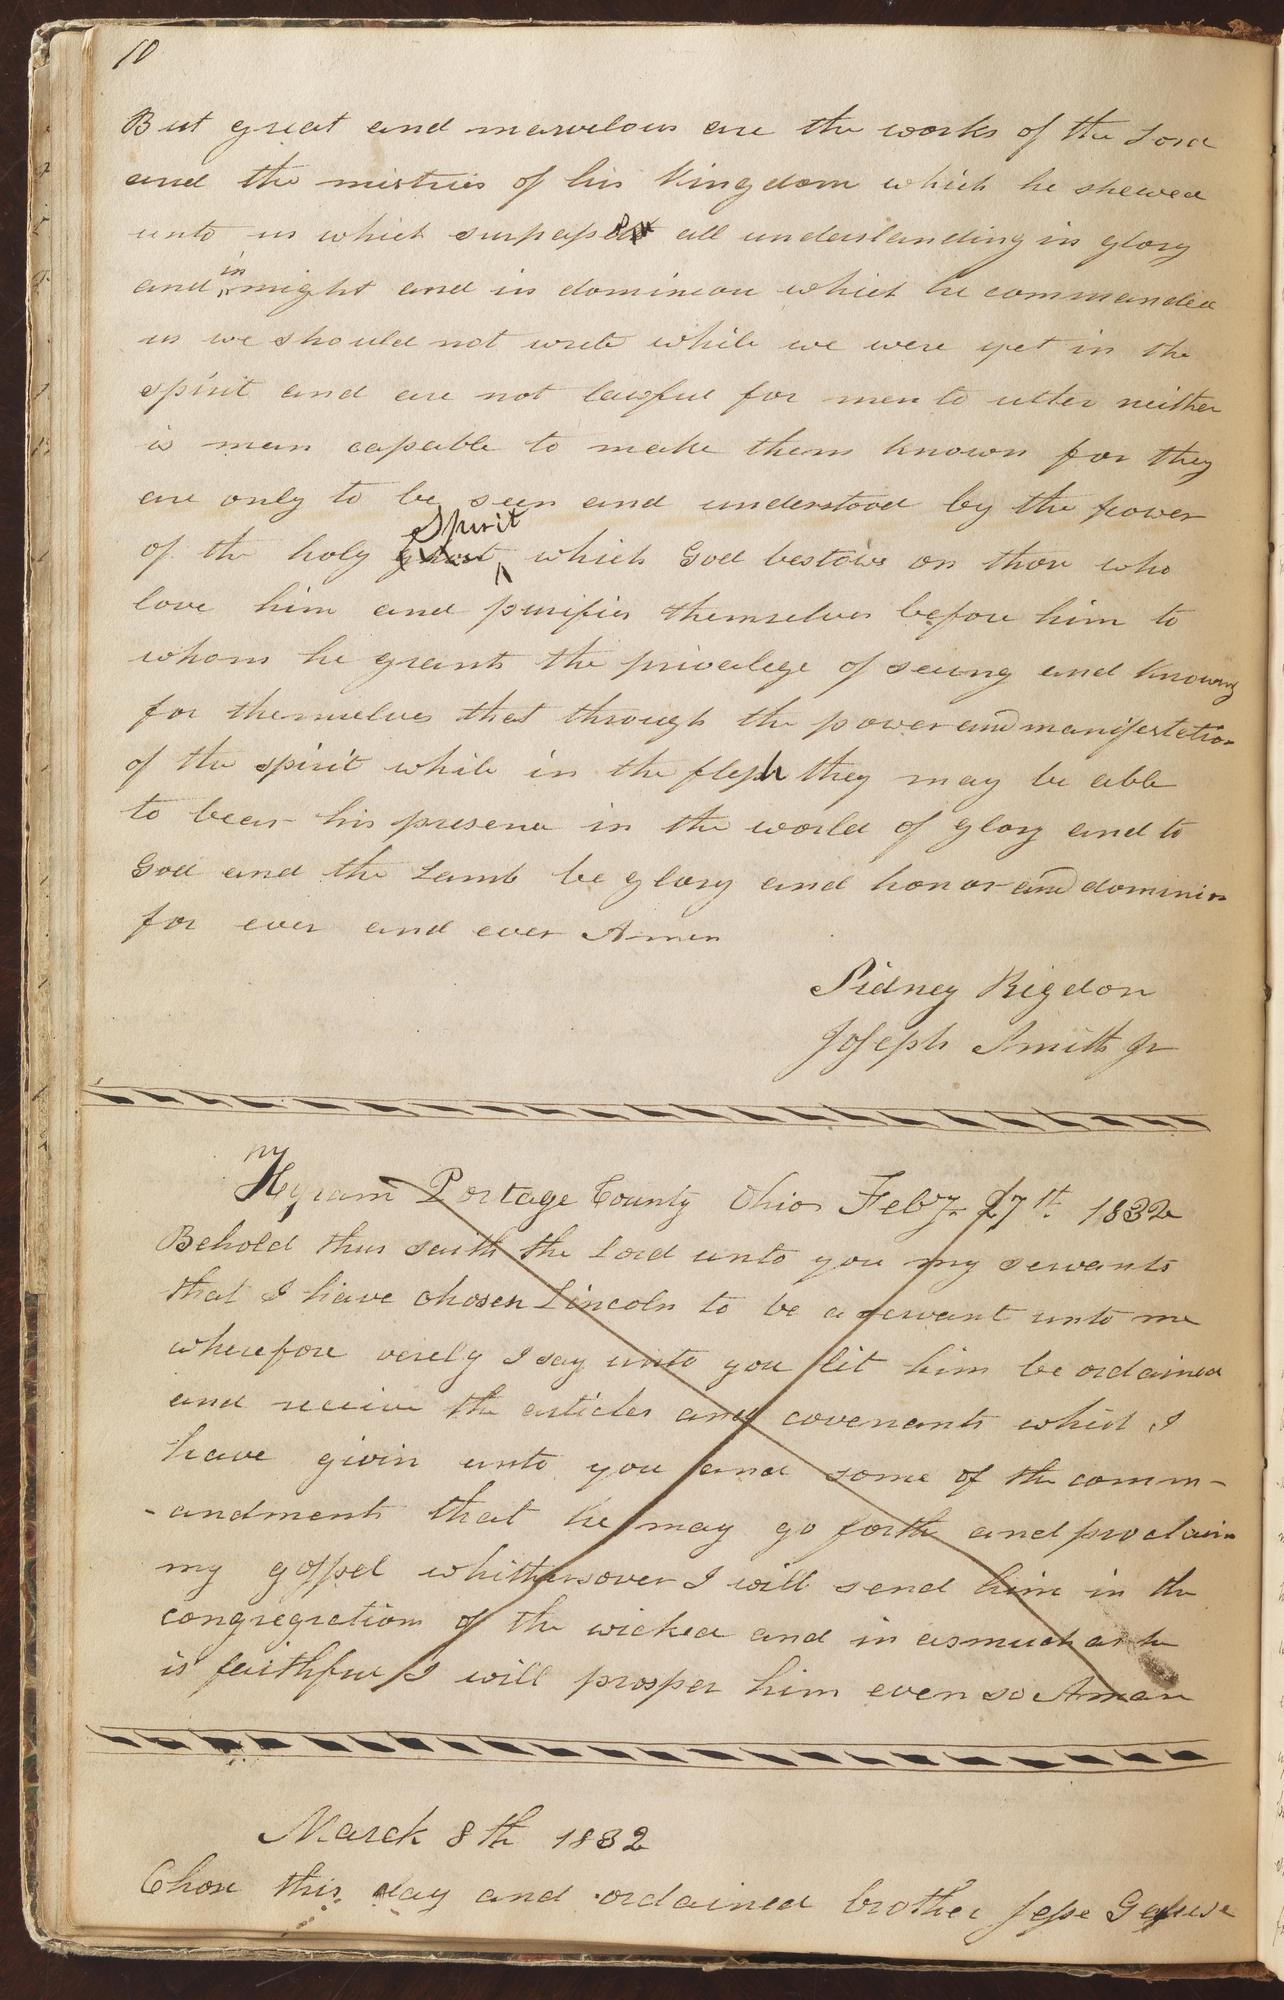 10
But great and marvelous are the works of the Lord
and the mistries of his Kingdom which he shewed
unto us which surpasses all understanding in glory
and in might and in dominion which he commanded
us we should not write while we were yet in the
spirit and are not lawful for men to utter neither
is man capable to make them known for they
are only to be seen and understood by the power
of the holy ghost Spirit which God bestows on those who
love him and purifies themselves before him to
whom he grants the privelege of seeing and knowing
for themselves that through the power and manifestation
of the spirit while in the flesh they may be able
to bear his presence in the world of glory and to
God and the Lamb be glory and honor and dominion
for ever and ever Amen
Sidney Rigdon
Joseph Smith Jr
Hyram Portage County Ohio Feby 27th 1832
Behold thus saith the Lord unto you my servants
that I have chosen Lincoln to be a servant unto me
wherefore verely I say unto you let him be ordained
and receive the articles and covenants which I
have givin unto you and some of the comm-
-andments that he may go forth and proclaim
my gospel whithersoever I will send him in the
congregration of the wicked and in asmuch as he
is faithful I will prosper him even so Aman
March 8th 1832
Chose this day and ordained brother Jesse Gause